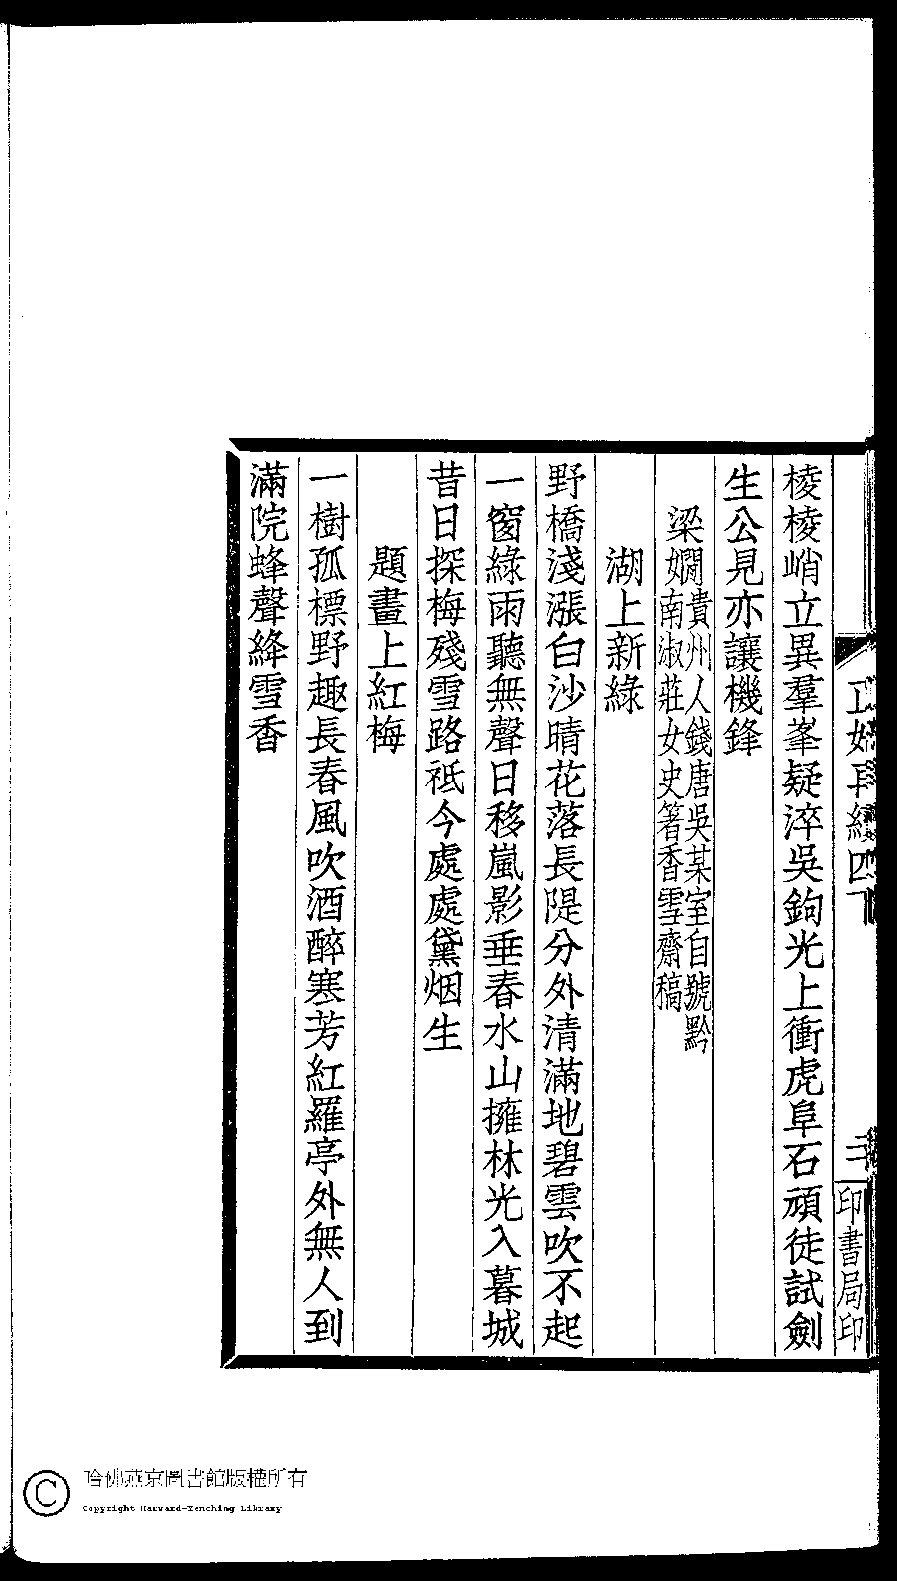 棱棱峭立異羣峯疑淬吳鉤光上衝虎阜石頑徒試劍
生公見亦讓機鋒
梁嫻
貴州人錢唐吳某室自號黔
南淑莊女史箸香雪齋稿
湖上新綠
野橋淺漲白沙晴花落長隄分外清滿地碧雲吹不起
一窗綠雨聽無聲日移嵐影垂春水山擁林光入暮城
昔日探梅殘雪路祗今處處黛烟生
題畫上紅梅
一樹孤標野趣長春風吹酒醉寒芳紅羅亭外無人到
滿院蜂聲絳雪香
印書局印
哈佛燕京圖書館版權所有
Copyright Harvard-Yenching Library